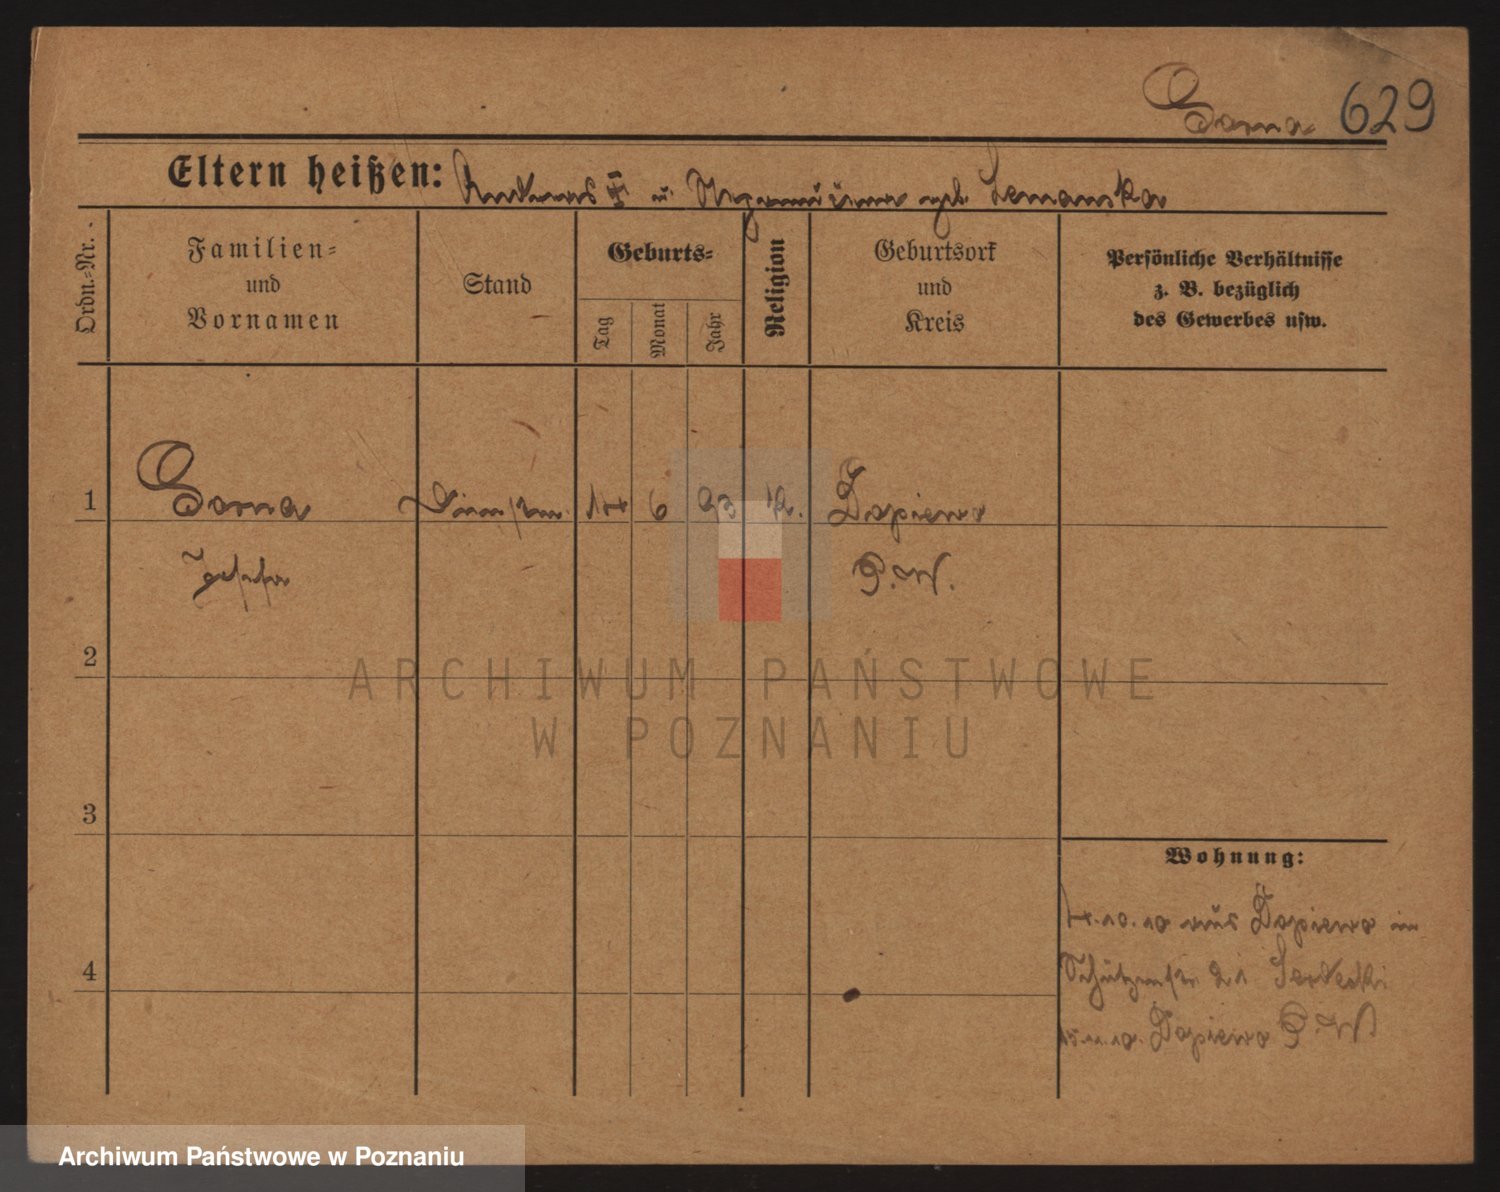 Sorna 629
Eltern heißen: Andreas † u. geb. Lemanska
Ordn.-Nr.
Familien-
und
Vornamen
Stand
Geburts-
Tag
Monat
Jahr
Religion
Geburtsort
und
Kreis
Persönliche Verhältnisse
z. B. bezüglich
des Gewerbes usw.
1 Sorna 14 6 93 k. Dopiewo
Josefa P. W.
2
3
4
Wohnung:
4.10.10 aus Dopiewo in
Schützenstr 21
15.11.10. Dopiewo P. W
ARCHIWUM PAŃSTWOWE
W POZNANIU
Archiwum Państwowe w Poznaniu